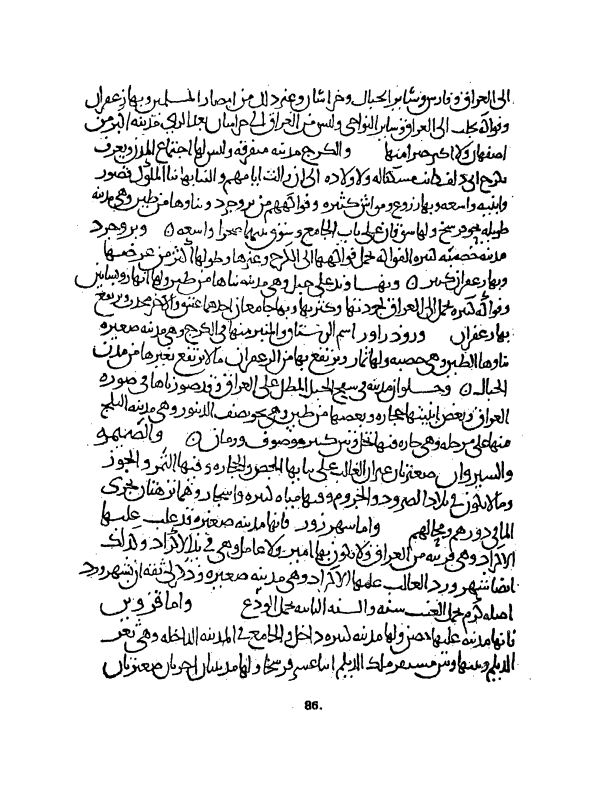 الى العراق وفارس وسائر الجبال وخراسان وغير ذلك من امصار المسلمين وبها زعفران
وفواكه تحمل الى العراق وسائر النواحي وليس من العراق الى خراسان بعد الري مدينة اكبر من
اصفهان ولا اكثر خيرا منها والكرج مدينة متفرقة وليس لها اجتماع المدن ويعرف
بكرج ابي دلف كانت مسكنا له ولاولاده الى ان زالت ايامهم والبنا بها بنا الملوك قصور
وابنية واسعة وبها زروع ومواش كثيرة وفواكههم من بروجرد وبناوها من طين وهي مدينة
طويلة نحو فرسخ ولها سوقان على باب الجامع وسوق بينهما صحرا واسعة ٥ وبروجرد
مدينة خصبة كثيرة الفواكه تحمل فواكهها الى الكرج وغيرها وطولها اكثر من عرضها
وبها زعفران كثير ٥ ونهاوند على جبل وهي مدينة بناها من طين ولها انهار وبساتين
وفواكه كثيرة تحمل الى العراق لجودتها وكثرتها وبها جامعان احدهما عتيق والاخر محدث ويرتفع
بها زعفران وروذراور اسم الرستاق والمنبر منها في الكرج وهي مدينة صغيرة
بناوها الطين وهي خصبة ولها ثمار ويرتفع بها من الزعفران ما لا يرتفع بغيرها من مدن
الجبال ٥ وحلوان مدينة في سفح الجبل المطل على العراق وقد صورناها في صورة
العراق وبعض ابنيتها حجارة وبعضها من طين وهي نحو نصف الدينور وهي مدينة الثلج
منها على مرحلة وهي حارة وبها نخل وتين كثير موصوف ورمان ٥ والصيمرة
والسيروان صغيرتان غير ان الغالب على بنائها الجص والحجارة وفيها التمر والجوز
وما لا يكون في بلاد الصرود والجروم وبها مياه كثيرة واشجار وهما نزهتان يجري
الماء في دورهم ومحالهم واما سهرزور فانها مدينة صغيرة قد غلب عليها
الاكراد وهي قريبة من العراق ولا يكون بها امير ولا عامل وهي في يد الاكراد وكذلك
ايضا شهرورد الغالب عليها الاكراد وهي مدينة صغيرة
اصله كرم تحمل العنب سنة والسنة الثانية تحمل الوذع واما قزوين
فانها مدينة عليها حصن ولها مدينة كثيرة داخل والجامع في المدينة الداخلة وهي ثغر
الديلم وبينها وبين مستقر ملك الديلم اثنا عشر فرسخا ولها مدينتان اخريان صغيرتان
86.